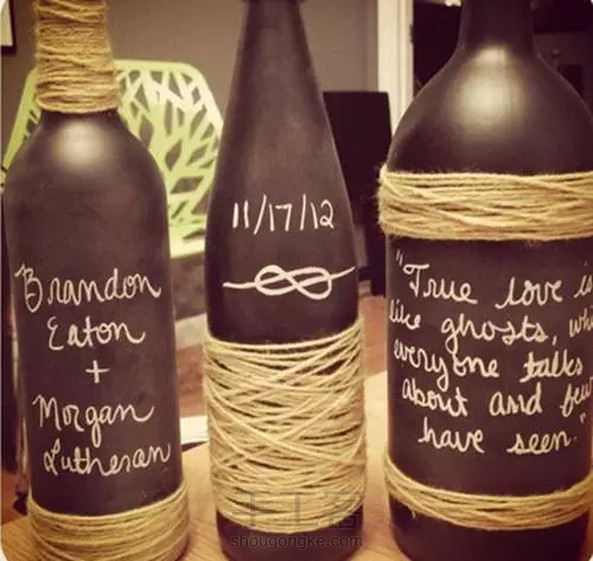 Brandon
Eaton
+
Morgan
Lutheran
11/17/12
"True love is
like ghosts, whi
everyone talks
about and few
have seen."
手工客
shougongke.com